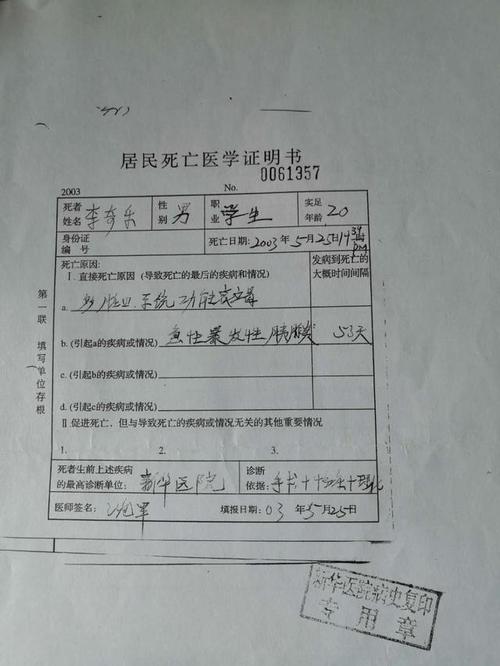 居民死亡医学证明书
2003 No. 0061357
死者姓名 李奇乐 性别 男 职业 学生 实足年龄 20
身份证编号 死亡日期:2003年5月25日
死亡原因: 发病到死亡的大概时间间隔
Ⅰ.直接死亡原因(导致死亡的最后的疾病和情况)
a. 系统功能衰竭
b.(引起a的疾病或情况) 急性暴发性胰腺炎 53天
c.(引起b的疾病或情况)
d.(引起c的疾病或情况)
Ⅱ促进死亡,但与导致死亡的疾病或情况无关的其他重要情况
1. 2. 3.
死者生前上述疾病的最高诊断单位: 新华医院 诊断依据: 手术+
医师签名: 填报日期:03年5月25日
第一联 填写单位存根
新华医院病史复印
专用章